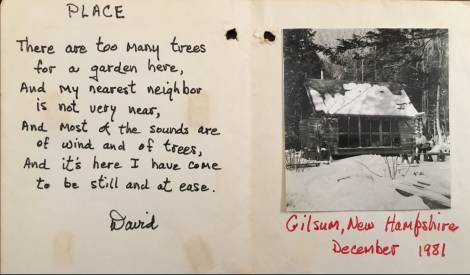 PLACE
There are too many trees
for a garden here,
And my nearest neighbor
is not very near,
And most of the sounds are
of wind and of trees,
And it's here I have come
to be still and at ease.
David
Gilsum, New Hampshire
December 1981